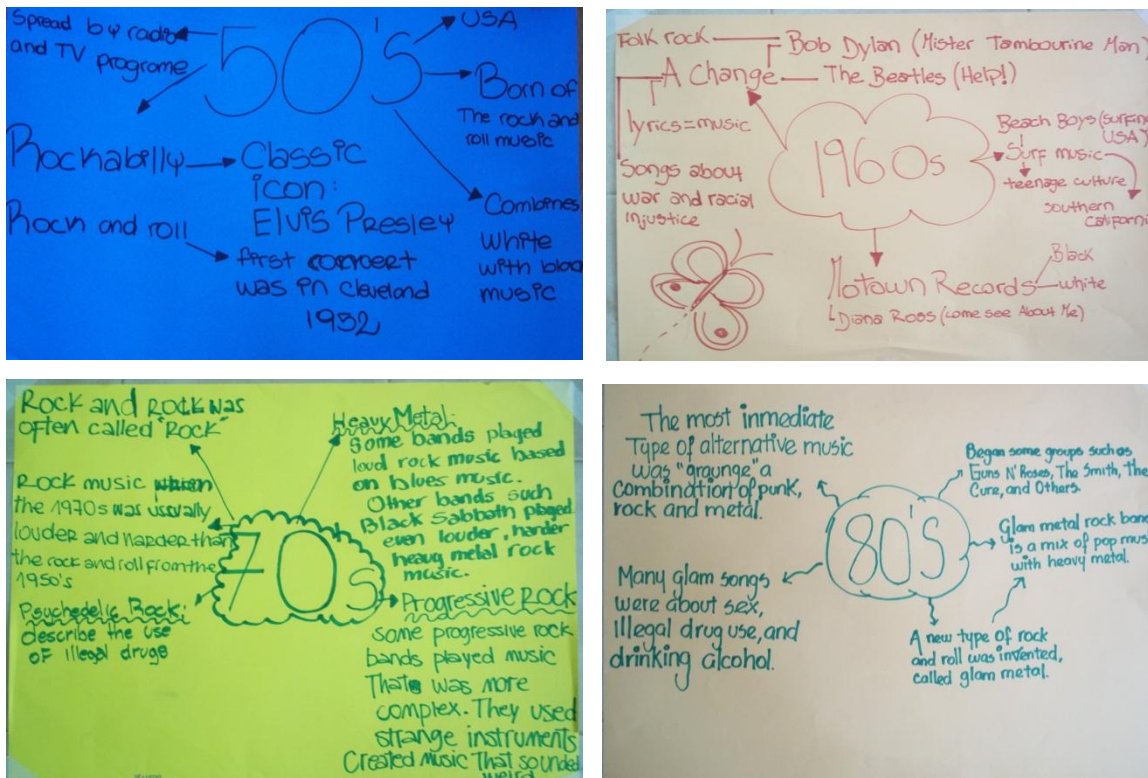 Spread by radio
and TV programe
50's
USA
Born of
The rock and
roll music
Rockabilly
Classic
icon:
ELVIS PRESLEY
Rocn and roll
first concert
was in Cleveland
1952
Combines
white
with
music
Folk rock
Bob Dylan (Mister Tambourine Man)
A Change
The Beatles (Help!)
lyrics=music
Songs about
war and racial
injustice
1960s
Beach Boys (surfing
USA)
Surf music
teenage culture
southern
California
Motown Records
Black
white
Diana Ross (come see About Me)
Rock and Rock was
often called "Rock"
Rock music
the 1970s was usually
louder and harder than
the rock and roll from the
1950's
Psychedelic Rock:
describe the use
of illegal drugs
70s
Heavy Metal:
Some bands played
loud rock music based
on blues music.
Other bands such
Black Sabbath played
even louder, harder
heavy metal rock
music.
Progressive Rock
some progressive rock
bands played music
That was more
complex. They used
strange instruments
Created music That sounded
weird
The most inmediate
Type of alternative music
was "graunge" a
combination of punk,
rock and metal.
80's
Began some groups such as
Guns N' Roses, The Smith, The
Cure, and Others.
Glam metal rock ban
is a mix of pop mus
with heavy metal.
A new type of rock
and roll was invented,
called glam metal.
Many glam songs
were about sex,
illegal drug use, and
drinking alcohol.